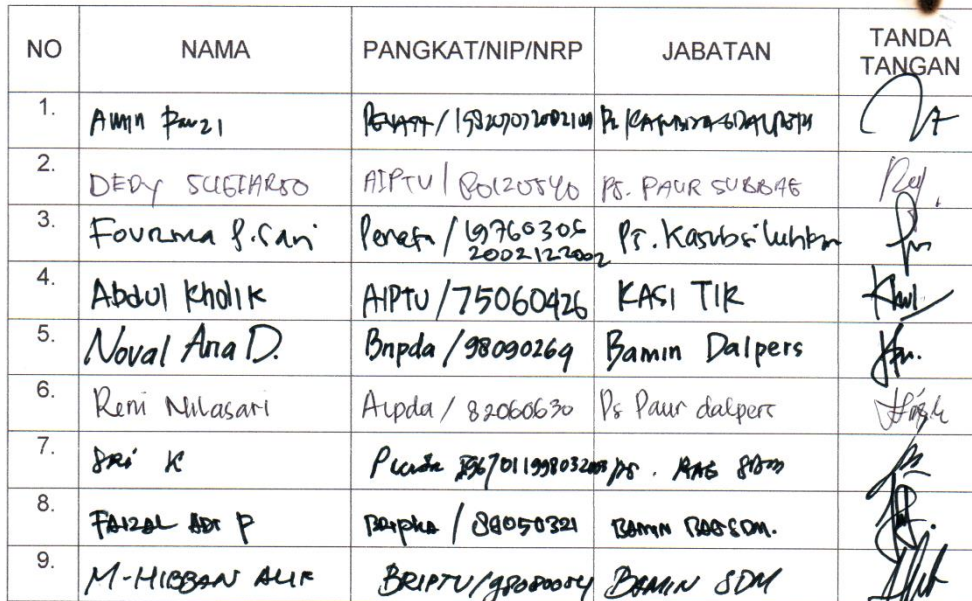 NO NAMA PANGKAT/NIP/NRP JABATAN TANDA TANGAN
1. Amin Fauzi Penata /
2. DEDY SUGIHARSO AIPTU / 80120540 PS. PAUR SUBBAG
3. Fourmea P. Sari Penata / 19760305 200212 2002 PS. Kasubsi luhkum
4. Abdul Kholik AIPTU /75060426 KASI TIK
5. Noval Aria D. Bripda / 98090269 Bamin Dalpers
6. Reni Nilasari Aipda / 82060630 Ps Paur dalpers
7. SRI K PS. BAG SDM
8. FAIZAL ADI P Bripka / 88050321 BAMIN BAGSDM.
9. M-HIBBAN ALIF BRIPTU/98080054 BAMIN SDM